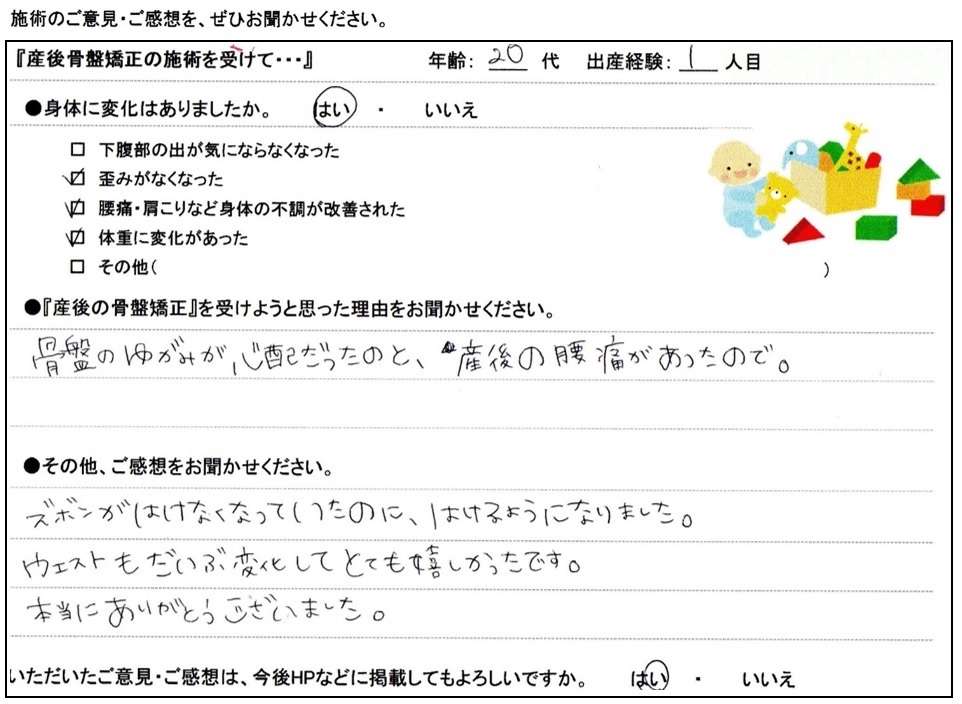 施術のご意見・ご感想を、ぜひお聞かせください。
『産後骨盤矯正の施術を受けて・・・』 年齢: 20 代 出産経験: 1 人目
●身体に変化はありましたか。 はい ・ いいえ
□ 下腹部の出が気にならなくなった
☑ 歪みがなくなった
☑ 腰痛・肩こりなど身体の不調が改善された
☑ 体重に変化があった
□ その他( )
●『産後の骨盤矯正』を受けようと思った理由をお聞かせください。
骨盤のゆがみが心配だったのと、産後の腰痛があったので。
●その他、ご感想をお聞かせください。
ズボンがはけなくなっていたのに、はけるようになりました。
ウエストもだいぶ変化してとても嬉しかったです。
本当にありがとうございました。
いただいたご意見・ご感想は、今後HPなどに掲載してもよろしいですか。 はい ・ いいえ